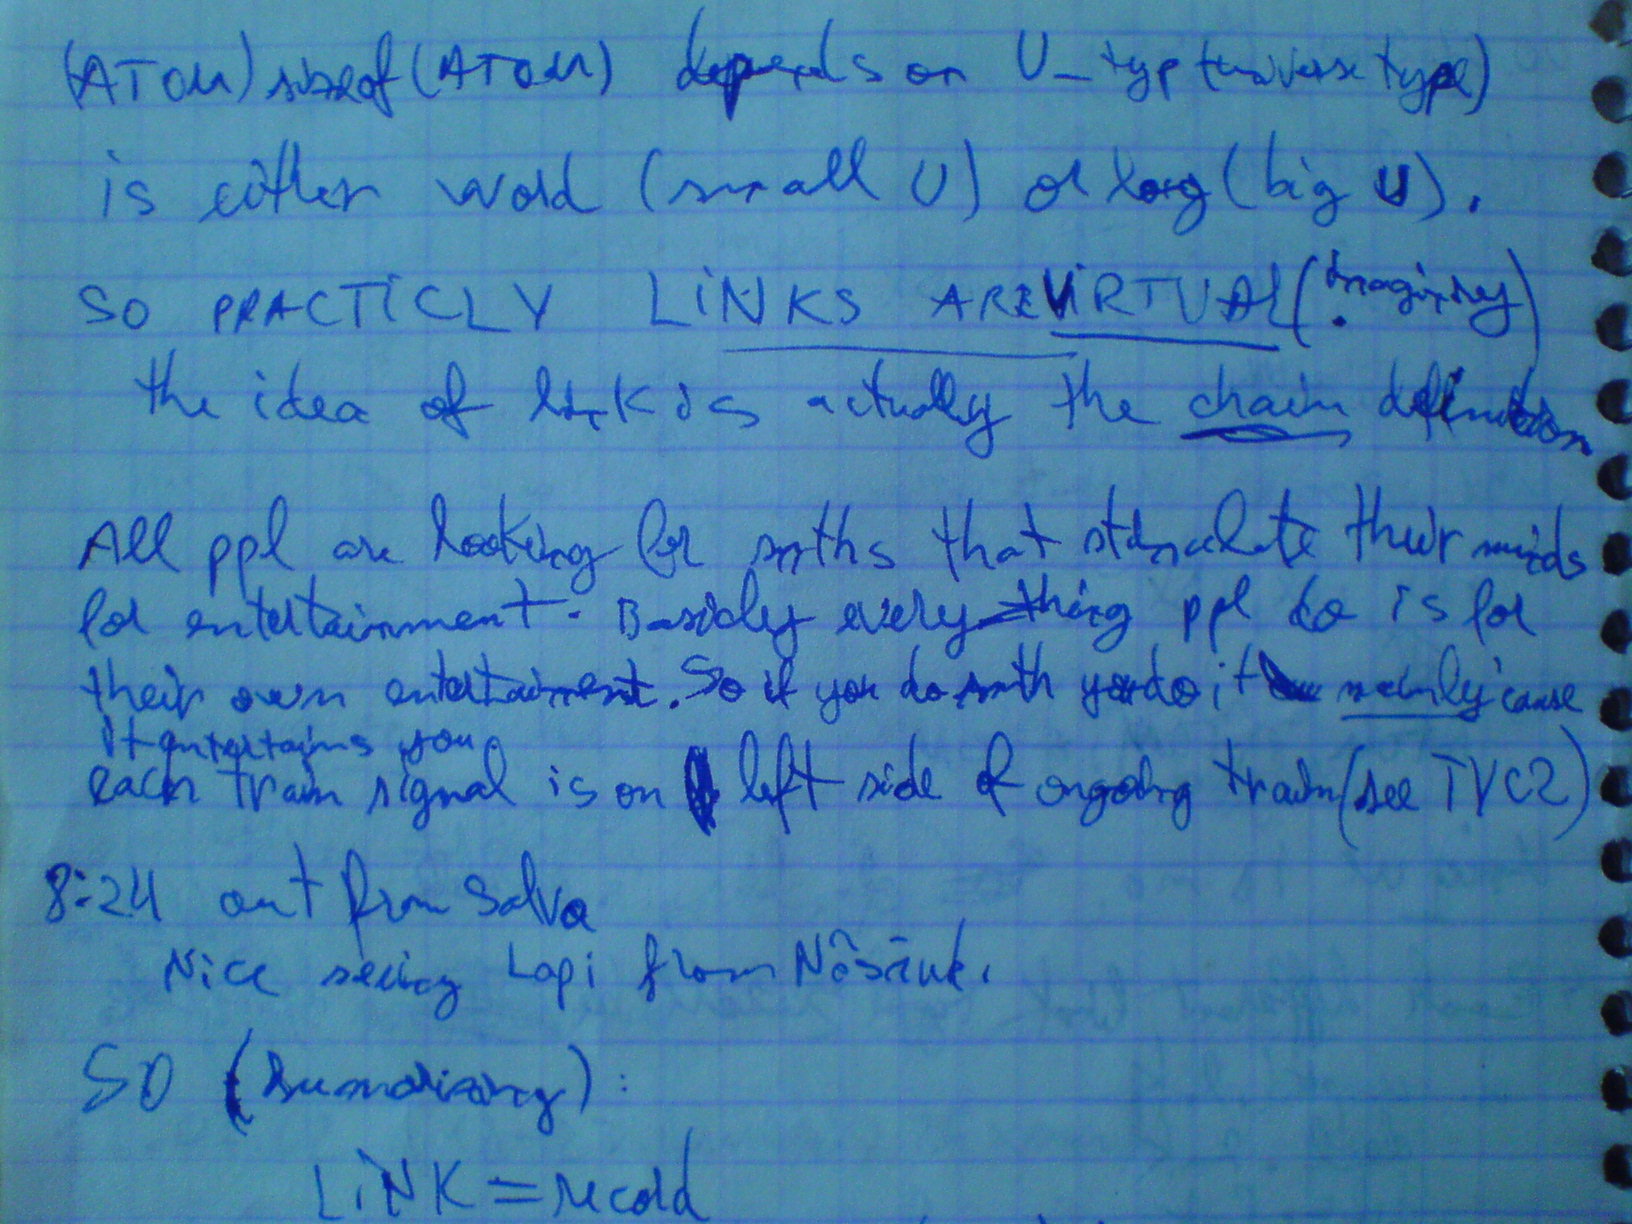 (ATOM) sizeof (ATOM) depends on U_typ (universe type)
is either word (small U) or long (big U).
SO PRACTICLY LINKS ARE VIRTUAL (imaginary)
the idea of link is actually the chain definition
All ppl are looking for smths that stimulate their minds
for entertainment. Basicly everything ppl do is for
their own entertaiment. So if you do smth you do it mainly 'cause
it entertains you
each train signal is on left side of ongoing train (see TVC2)
8:24 out from Salva
Nice seeing Lapi from
SO (sumarizing):
LINK = record